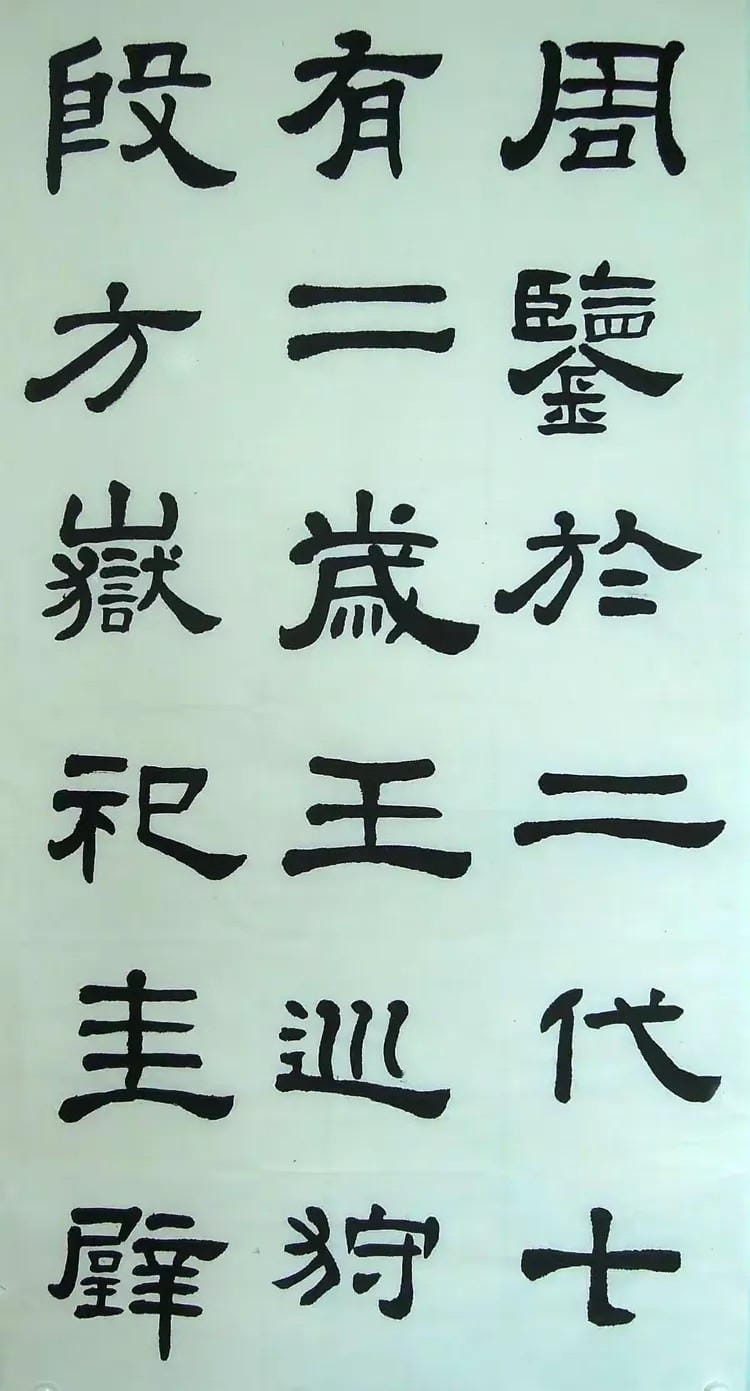 周鑒於二代七
有二歲王巡狩
殷方嶽祀圭璧